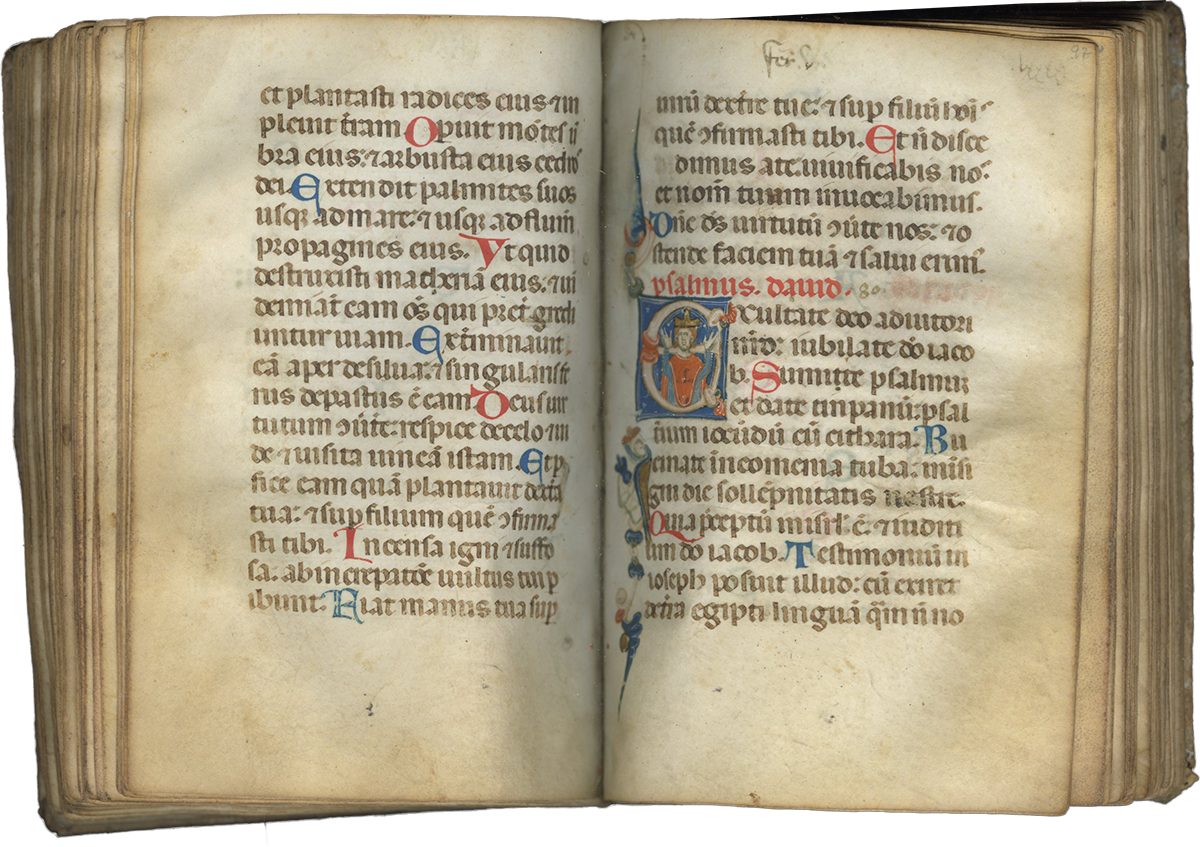 et plantasti radices eius ⁊ im
pleuit t̄ram. Opuit mōtes ū
bra eius: ⁊ arbusta eius cedros
dei. Extendit palmites suos
usq; ad mare: ⁊ usq; ad flum̄
propagines eius. Ut quid
destruxisti macheriā eius: ⁊ ui
demiāt eam oēs qui pret gredi
untur uiam. Exterminauit
eā aper de silua: ⁊ singularis fe
rus depastus ē eam. Deus uir
tutum ↄuerte: respice de celo ⁊ ui
de ⁊ uisita uineā istam. Et p
fice eam quā plantauit dextra
tua: ⁊ sup filium quē ↄfirma
sti tibi. Incensa igni ⁊ suffo
sa: ab increpatōe uultus tui p
ibunt. Fiat manus tua sup
Fer. V.
97
uirū dextre tue: ⁊ sup filiū hoīs
quē ↄfirmasti tibi. Et n̄ disce
dimus a te: uiuificabis nos
et nom̄ tuum inuocabimus.
Dn̄e ds̄ uirtutū ↄūte nos: ⁊ o
stende faciem tuā ⁊ salui erim̄.
psalmus. dauid. 80.
Exultate deo adiutori
nr̄o: iubilate dō iaco
b. Sumite psalmum
et date tinpanū: psal
terium iocūdū cū cithara. Bu
cinate in neomenia tuba: insi
gni die sollēpnitatis nestre.
Quia p̄ceptū in isrl̄ ē: ⁊ iuditi
um dō iacob. Testimonium in
ioseph posuit illud: cū exiret
de t̄ra egipti linguā q̄m nō no